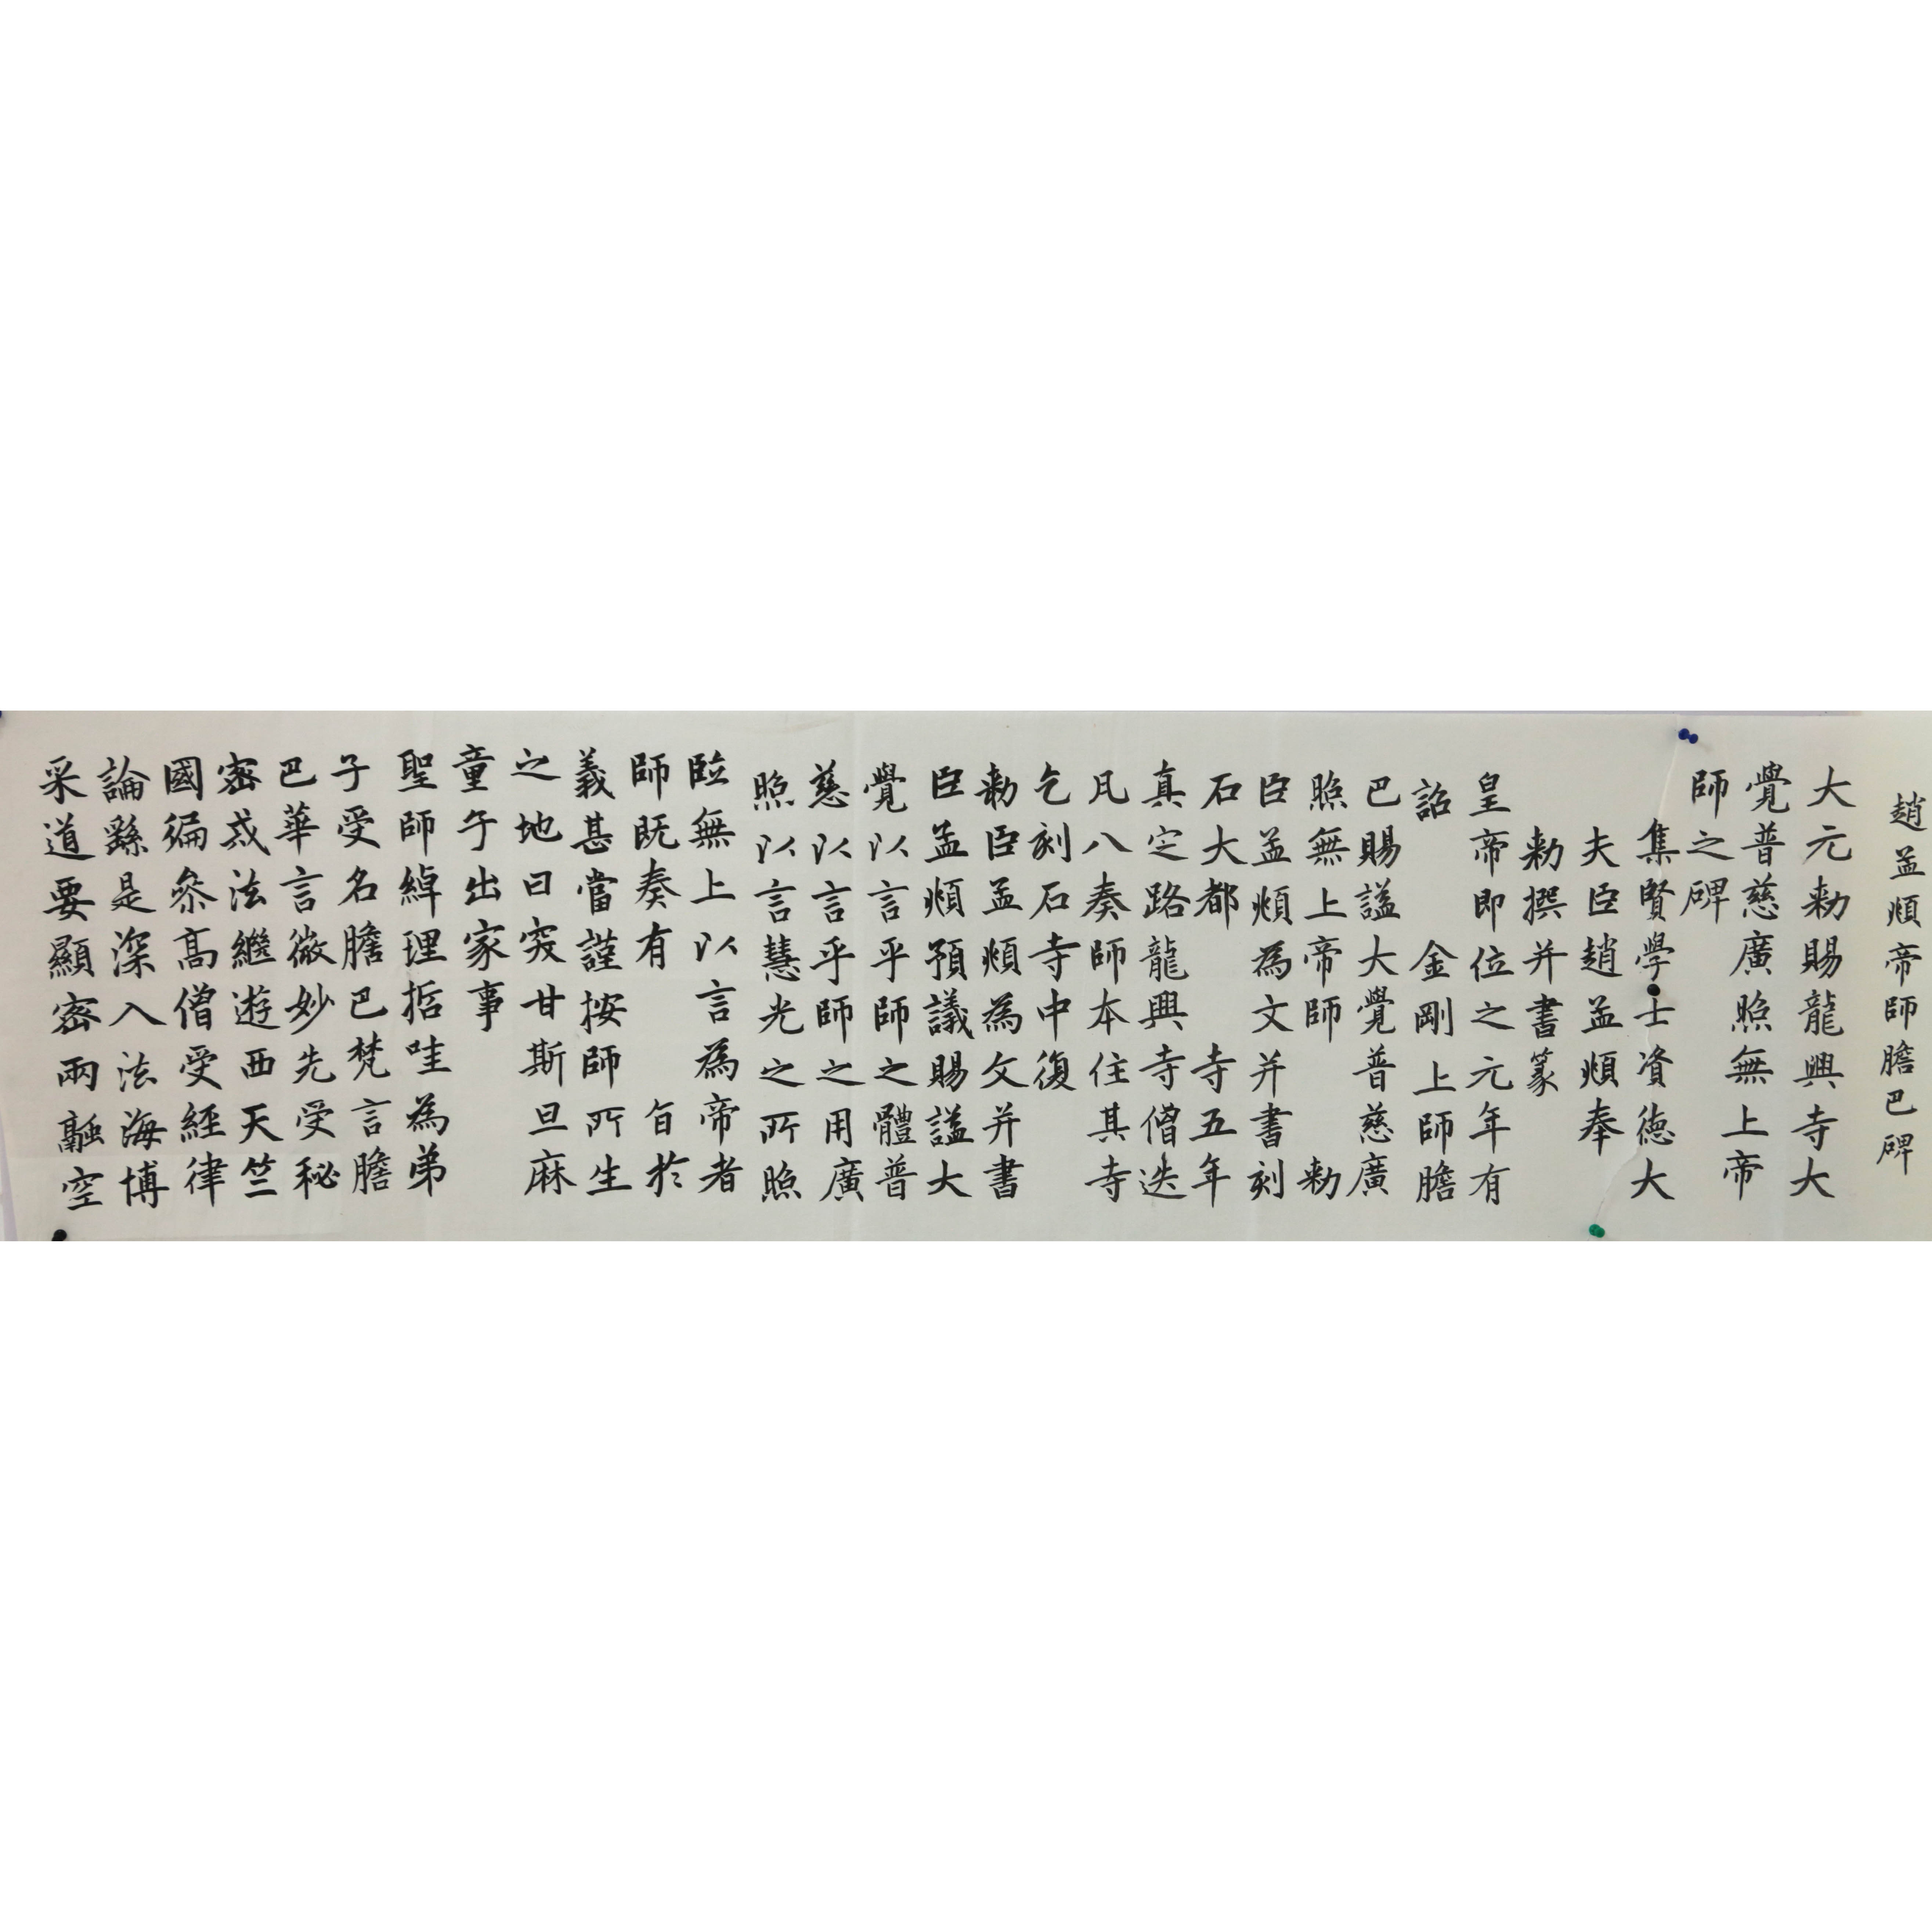 趙孟頫帝師膽巴碑
大元勅賜龍興寺大
覺普慈廣照無上帝
師之碑
集賢學士資德大
夫臣趙孟頫奉
勅撰并書篆
皇帝即位之元年有
詔 金剛上師膽
巴賜謚大覺普慈廣
照無上帝師 勅
臣孟頫為文并書刻
石大都 寺五年
真定路龍興寺僧迭
凡八奏師本住其寺
乞刻石寺中復
勅臣孟頫為文并書
臣孟頫預議賜謚大
覺以言乎師之體普
慈以言乎師之用廣
照以言慧光之所照
臨無上以言為帝者
師既奏有 旨於
義甚當謹按師所生
之地曰突甘斯旦麻
童子出家事
聖師綽理哲哇為弟
子受名膽巴梵言膽
巴華言微妙先受秘
密戒法繼遊西天竺
國徧叅高僧受經律
論繇是深入法海博
采道要顯密兩融空